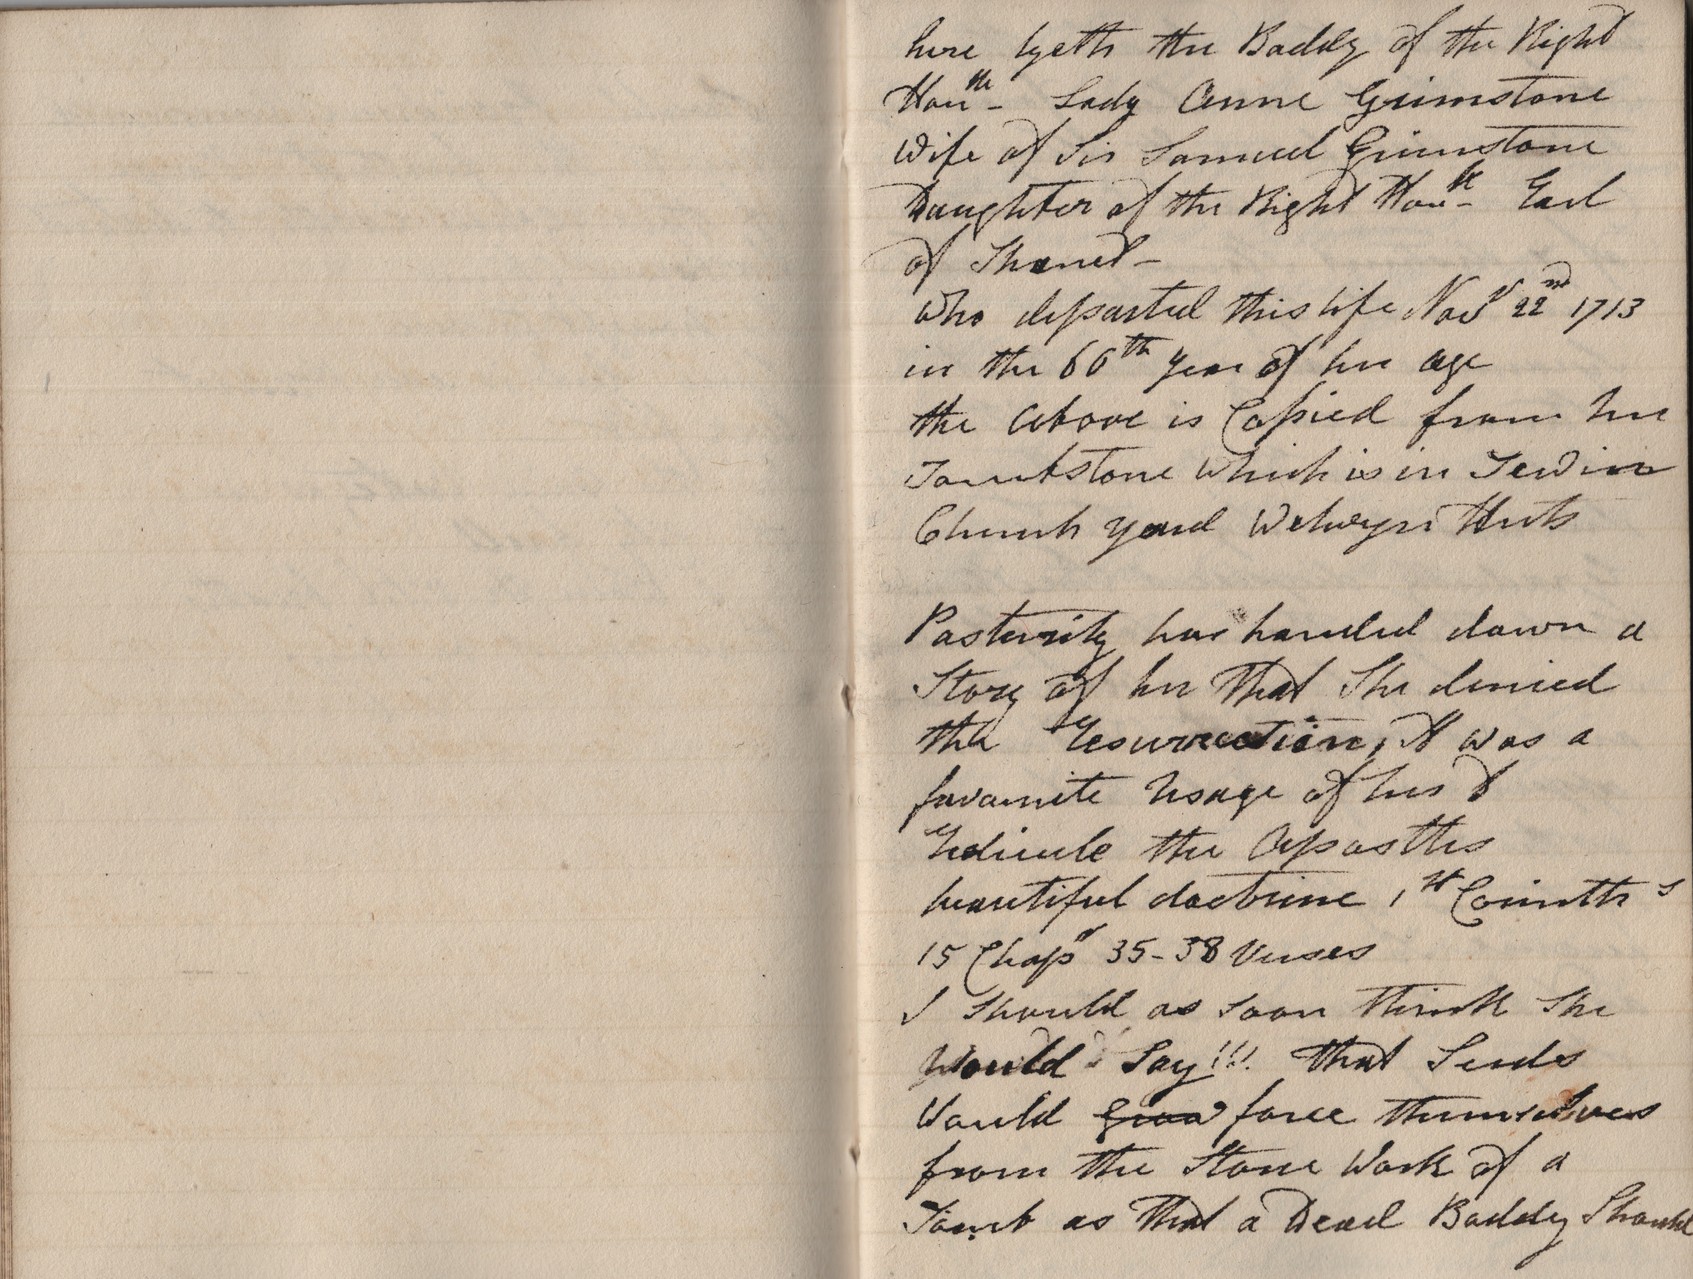 here lyeth the Boddy of the Right
Honble - Lady Anne Grimstone
Wife of Sir Samuel Grimstone
Daughter of the Right Honble - Earl
of Thanet -
who departed this life Novr 22nd 1713
in the 60th Year of her age
the above is Copied from her
Tombstone which is in Tewin
Church yard Welwyn Herts
Posterity has handed down a
Story of her that She denied
the resurrection, It was a
favourite Usage of hers to
redicule the Aposttles
beautiful doctrine 1st Corinths
15 Chapr 35-38 Verses
I should as soon think She
Would Say!!! that Seeds
Would Grow force themselves
from the Stone Work of a
Tomb as that a Dead Boddy Should